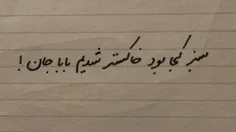 سبز کجا بود خاکستر شدیم باباجان!